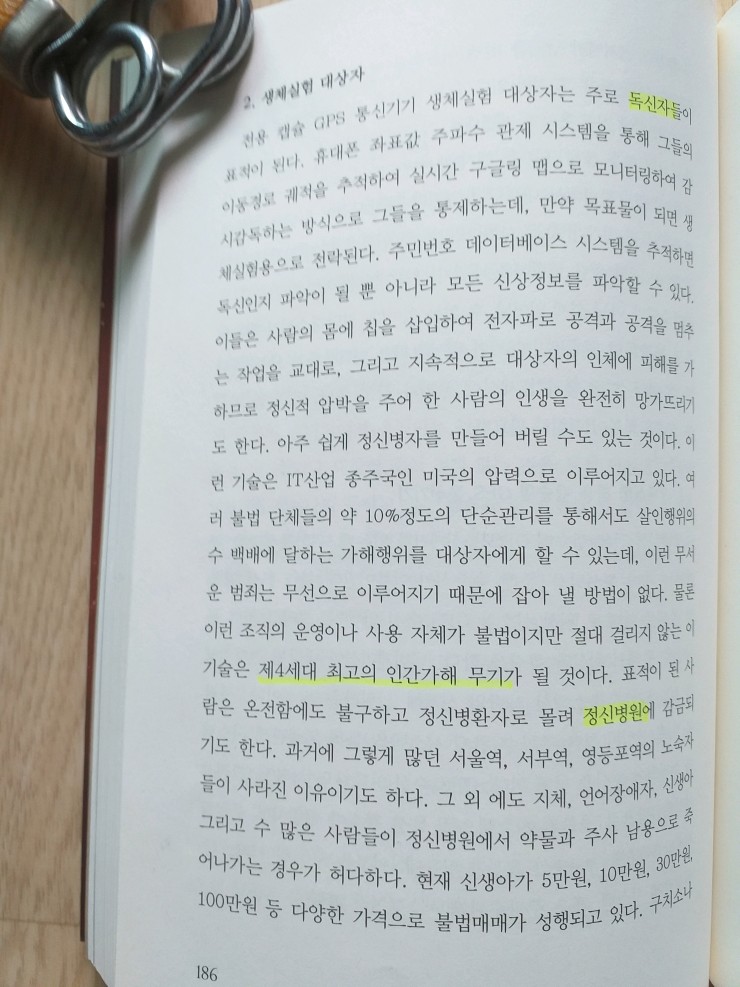 2. 생체실험 대상자
전용 캡슐 GPS 통신기기 생체실험 대상자는 주로 독신자들이
표적이 된다. 휴대폰 좌표값 주파수 관제 시스템을 통해 그들의
이동경로 궤적을 추적하여 실시간 구글링 맵으로 모니터링하여 감
시감독하는 방식으로 그들을 통제하는데, 만약 목표물이 되면 생
체실험용으로 전락된다. 주민번호 데이터베이스 시스템을 추적하면
독신인지 파악이 될 뿐 아니라 모든 신상정보를 파악할 수 있다.
이들은 사람의 몸에 칩을 삽입하여 전자파로 공격과 공격을 멈추
는 작업을 교대로, 그리고 지속적으로 대상자의 인체에 피해를 가
하므로 정신적 압박을 주어 한 사람의 인생을 완전히 망가뜨리기
도 한다. 아주 쉽게 정신병자를 만들어 버릴 수도 있는 것이다. 이
런 기술은 IT산업 종주국인 미국의 압력으로 이루어지고 있다. 여
러 불법 단체들의 약 10%정도의 단순관리를 통해서도 살인행위의
수 백배에 달하는 가해행위를 대상자에게 할 수 있는데, 이런 무서
운 범죄는 무선으로 이루어지기 때문에 잡아 낼 방법이 없다. 물론
이런 조직의 운영이나 사용 자체가 불법이지만 절대 걸리지 않는 이
기술은 제4세대 최고의 인간가해 무기가 될 것이다. 표적이 된 사
람은 온전함에도 불구하고 정신병환자로 몰려 정신병원에 감금되
기도 한다. 과거에 그렇게 많던 서울역, 서부역, 영등포역의 노숙자
들이 사라진 이유이기도 하다. 그 외 에도 지체, 언어장애자, 신생아
그리고 수 많은 사람들이 정신병원에서 약물과 주사 남용으로 죽
어나가는 경우가 허다하다. 현재 신생아가 5만원, 10만원, 30만원,
100만원 등 다양한 가격으로 불법매매가 성행되고 있다. 구치소나
186